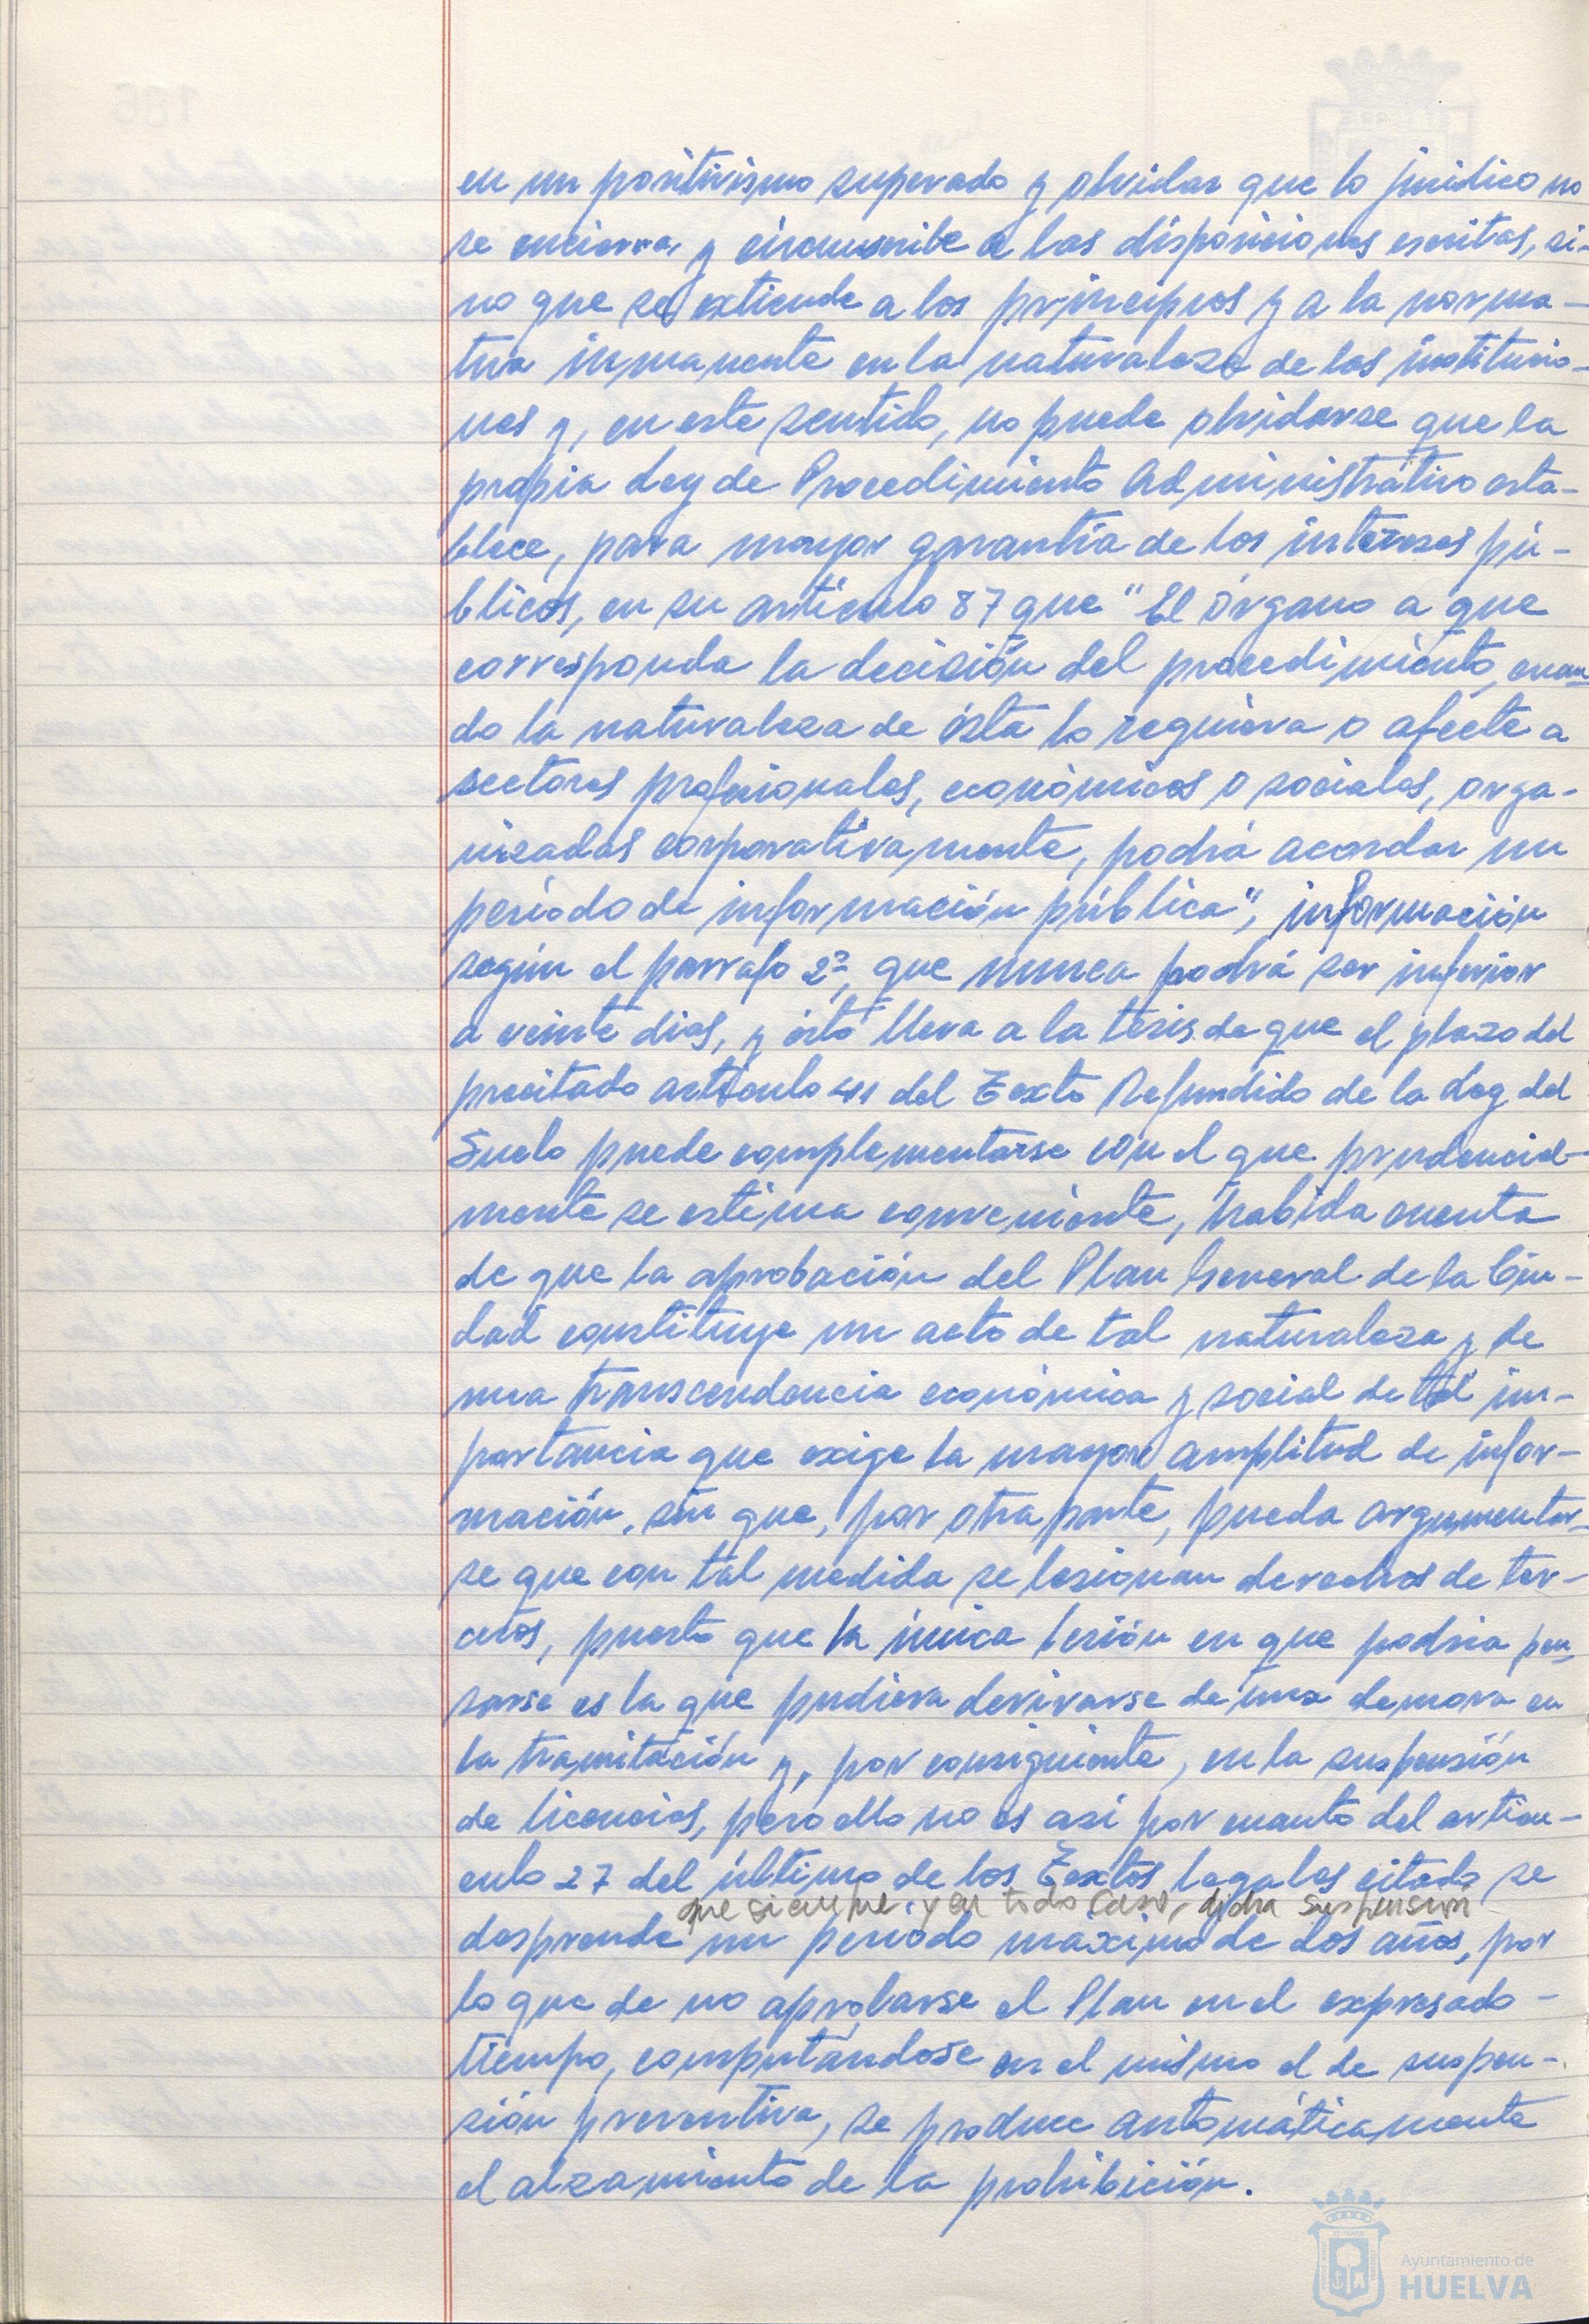 en un positivismo superado y olvidar que lo jurídico no
se encierra y circunscribe a las disposiciones escritas, si-
no que se extiende a los principios y a la norma-
tiva inmanente en la naturaleza de las institucio-
nes y, en este sentido, no puede olvidarse que la
propia Ley de Procedimiento Administrativo esta-
blece, para mayor garantía de los intereses pú-
blicos, en su artículo 87 que "El órgano a que
corresponda la decisión del procedimiento, cuan
do la naturaleza de ésta lo requiera o afecte a
sectores profesionales, económicos o sociales, orga-
nizadas corporativamente, podrá acordar un
período de información pública", información
según el parrafo 2º, que nunca podrá ser inferior
a veinte dias, y ésto lleva a la tesis de que el plazo del
precitado artículo 41 del Texto Refundido de la Ley del
Suelo puede complementarse con el que prudencial-
mente se estima conveniente, habida cuenta
de que la aprobación del Plan General de la Ciu-
dad constituye un acto de tal naturaleza y de
una transcendencia económica y social de tal im-
portancia que exige la mayor amplitud de infor-
mación, sin que, por otra parte, pueda argumentar-
se que con tal medida se lesionan derechos de ter-
ceros, puesto que la única lesión en que podria pen
sarse es la que pudiera derivarse de una demora en
la tramitación y, por consiguiente, en la suspensión
de licencias, pero ello no es asi por cuanto del artícu-
culo 27 del último de los Textos legales citados se
que siempre y en todo caso, dicha suspensión
desprende un período máximo de dos años, por
lo que de no aprobarse el Plan en el expresado -
tiempo, computándose en el mismo el de suspen-
sión preventiva, se produce automáticamente
el alzamiento de la prohibición.
Ayuntamiento de
HUELVA